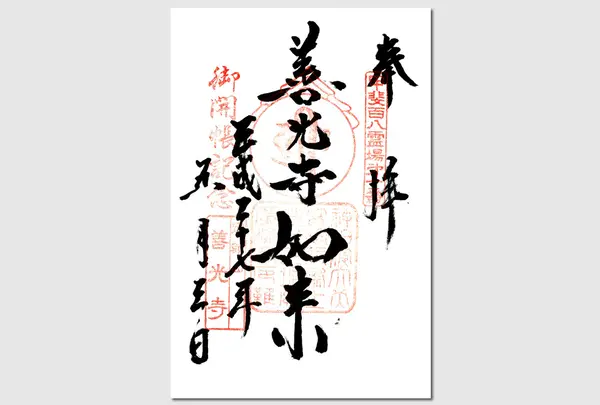 奉拝
甲斐百八霊場
善光寺如来
平成二十七年
五月三日
御開帳記念
善光寺